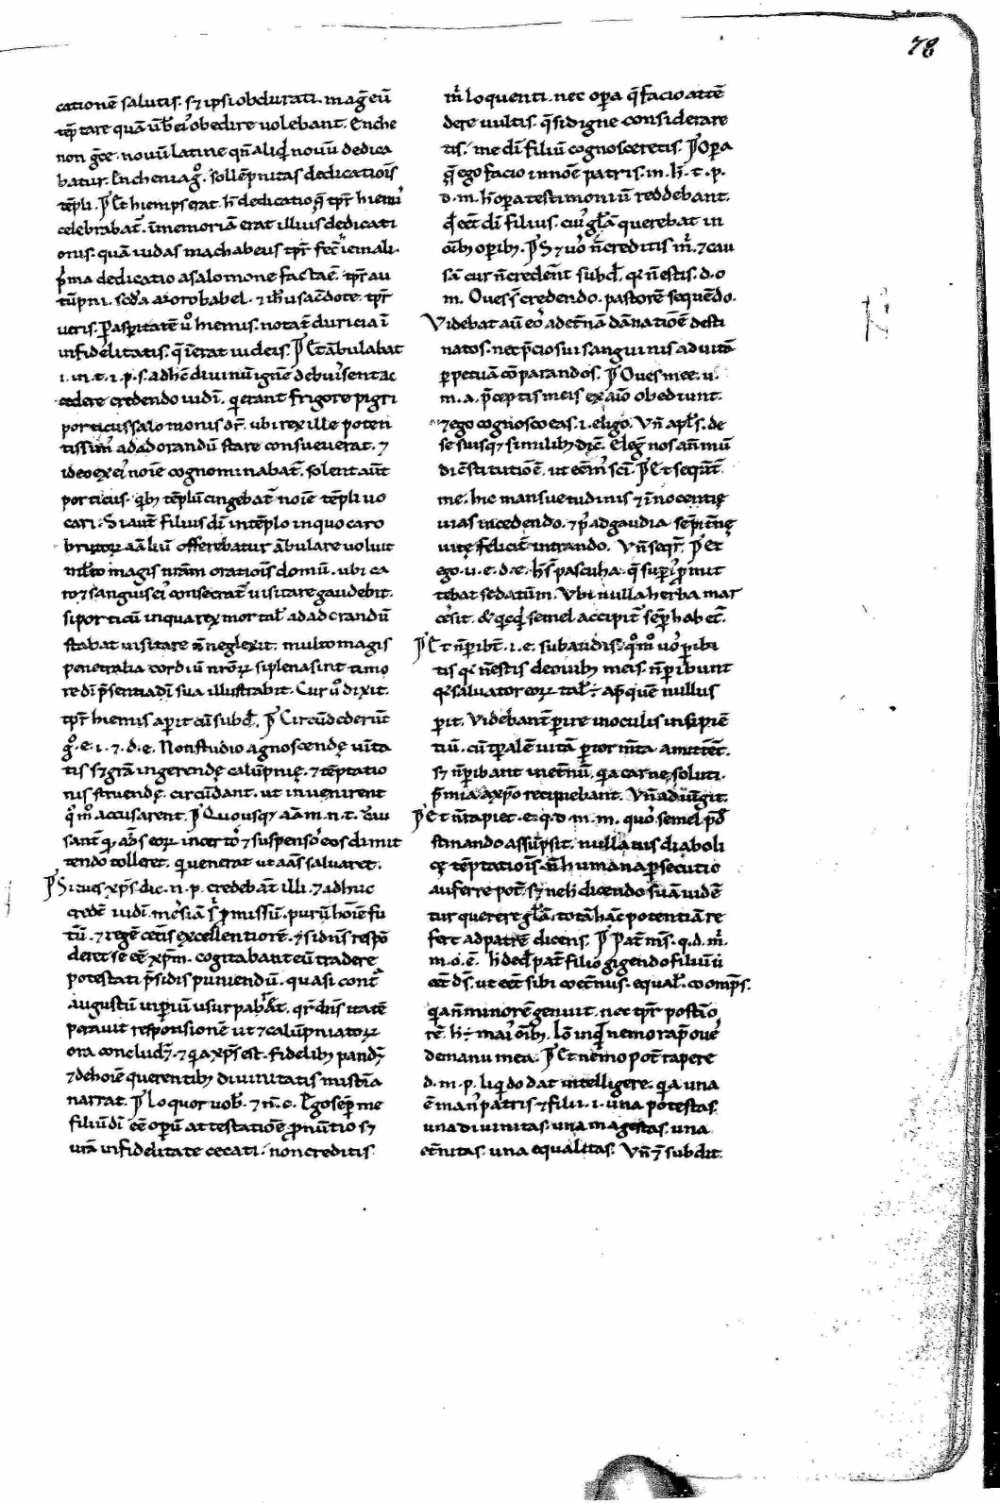 78
cationē salutis. sꝫ ipsi obdurati. mag̃ eū
tēptare quā ūb̄ ei᷒ obedire volebant. Enche
non gͨce. novū latine qn̄ aliqd̛ novū dedica
batur. Enchenia gͦ. sollēpnitas dedicatiois̄
tēpli. ꝑ Et hiemps erat. h̄ dedicatio q̄ tꝑr̄ hiemi᷒
celebrabat᷒. ī memoriā erat illius dedicati
onis. quā iudas machabeus tꝑr̄ fec̄ iemali.
p̄ma dedicatio a salomone facta ē. tꝑr̄ au
tūpni. scd̄a a zorobabel. ⁊ ih̄u sac̄dote. tꝑr̄
veris. ꝑ asp̄itatē ū hiemis. notat᷒ duricia ī
infidelitatis. q̄ īerat iudeis. ꝑ Et ābulabat
i. in. t. i. p. s. ad hē divinū ignē debuis̄ent ac
cedere credendo iudi᷒. qi erant frigore pigri
porticus salomonis dr̄. ubi rex ille poten
tissim᷒ ad adorandū stare consueverat. ⁊
ideo ex ei᷒ noīe cognominabat᷒. solent aūt
porticus. qib᷒ tēplū cingebat᷒ noīe tēpli vo
cari. Si aut̄ filius dī in tēplo in quo caro
brutoꝝ aīaliū offerebatur ābulare voluit
mlto magis nr̄am orationis̄ domū. ubi ca
ro ⁊ sanguis ei᷒ consecrat᷒ visitare gaudebit.
si porticū in qua rex mortal̄ ad adorandū
stabat visitare n̄ neglexit. multo magis
penetralia cordiū nr̄oꝝ si plena sint timo
re dī p̄sentia dī sua illustrabit. Cur ū dixit.
tꝑr̄ hiemis aperit cū subd̄. ꝑ Circūdederūt
gͦ. e. i. ⁊. d. e. Non studio agnoscendę vīta
tis sꝫ grā ingerendę calūpnię. ⁊ tēptatio
nis struendę. circūdant. ut invenirent
qͦmͦ accusarent. ꝑ Quousqꝫ aīam. n. t. Cau
sant᷒ qi aīas eoꝝ incerto ⁊ suspenso eos dimit
tendo tolleret. qi venerat ut aīas salvaret.
ꝑ Si tu es xp̄s dic. n. p. credebāt illi. ⁊ adhuc
credē iudi᷒ mesiā s̄ ꝓmissū. purū hoīem fu
tū. ⁊ regē cet̄is excellentiorē. ⁊ si dn̄s respō
deret se eē xp̄m. cogitabant eū tradere
potestati p̄sidis puniendū. quasi contͣ
augustū inperiū usurpabat. qr̄ dn̄s itatē
peravit responsionē ut ⁊ calūpniatoꝝ
ora concludꝫ. ⁊ qia xp̄s est. fidelib᷒ pandꝫ
⁊ de hoīe querentib᷒ divinitatis mist̄ia
narrat. ꝑ Loquor vob̄. ⁊ n̄. c. Ego sēp me
filiū dī eē operū attestatiōe ꝓnūtio sꝫ
vr̄a infidelitate cecati. non creditis
m̄ loquenti. nec oꝑa q̄ facio attē
dere vultis. q̄ si digne considerare
tis. me dī filiū cognosceretis. ꝑ Oꝑa
q̄ ego facio in noē patris. m. h̄. t. p.
d. m. h̄ oꝑa testimoniū reddebant.
qd̄ eēt dī filius. cui᷒ glā᷒ querebat in
oīb᷒ operib᷒. ꝑ Sꝫ vͦ n̄ creditis m̄. ⁊ cau
sā cur n̄ credent subd̄. qi n̄ estis. d. o
m. Oves s̄ credendo. pastorē sequēdo.
Videbat aū eos ad et̄nā dānationē desti
natos. nec p̄cio sui sanguinis ad vitā
ꝑpetuā cōparandos. ꝑ Oves mee. v.
m. a. p̄ceptis meis ex aīo obediunt.
⁊ ego cognosco eas. i. eligo. Vn̄ apl̄s. de
se suisqꝫ similib᷒ dic̄. Elegͥ nos an̄ mū
di cōstitutionē. ut eēm᷒ sci᷒. ꝑ Et sequt̄.
me. hic mansuetudinis ⁊ īnocentię
vias incedendo. ⁊ p̄ ad gaudia sēpit̄nę
vitę felicit᷒ intrando. Vn̄ seqr̄. ꝑ Et
ego. v. e. d. e. h̄ s̄ pascuha. q̄ suꝑi᷒ ꝓmit
tebat se datūm. Ubi nulla herba mar
cescit. ⁊ qͥcqͥd semel accipit᷒ sēp habet᷒.
ꝑ Et n̄ ꝑibt̄. i. e. subaudis. qͦmͦ vos ꝑibi
tis qi n̄ estis de ovib᷒ meis. n̄ ꝑibunt
qi salvator eoꝝ tal̄ ÷ ap̄ quē nullus
ꝑit. Videbant᷒ ꝑire in oculis insipiē
tiū. cū tꝑalē vitā ꝑ torm̄ta amittēt᷒.
sꝫ n̄ ꝑibant in et̄nū. qia carne soluti.
p̄mia a xp̄o recipiebant. Vn̄ adiūgit.
ꝑ Et n̄ rapiet. e. q. d. m. m. quos semel p̄d
stinando assūpsit. nulla vis diaboli
cę tēptatiois̄. n̄ humana ꝑsecutio
auferre pot̄. sꝫ ne h̄ dicendo suā vidē
tur querere gl̄ā. totā hāc potentiā re
fert ad patrē dicens. ꝑ Pat̄ ms̄. q. d. m̄.
m. o. ē. h̄ ded̄ pat̄ filio gigendo filiū ū
eēt ds̄. ut eēt sibi coet̄nus. equal̄. coomp̄s.
qia n̄ minorē genuit. nec tꝑr̄ postio
rē. h̄ ÷ mai᷒ oīb᷒. Iō inqͥt nemo rap̄ ove᷒
de manu mea. ꝑ Et nēmo pot̄ rapere
d. m. p. liqido dat intelligere. qia una
ē man᷒ patris ⁊ filii. i. una potestas.
una divinitas. una magestas. una
et̄nitas. una equalitas. Vn̄ ⁊ subdit.